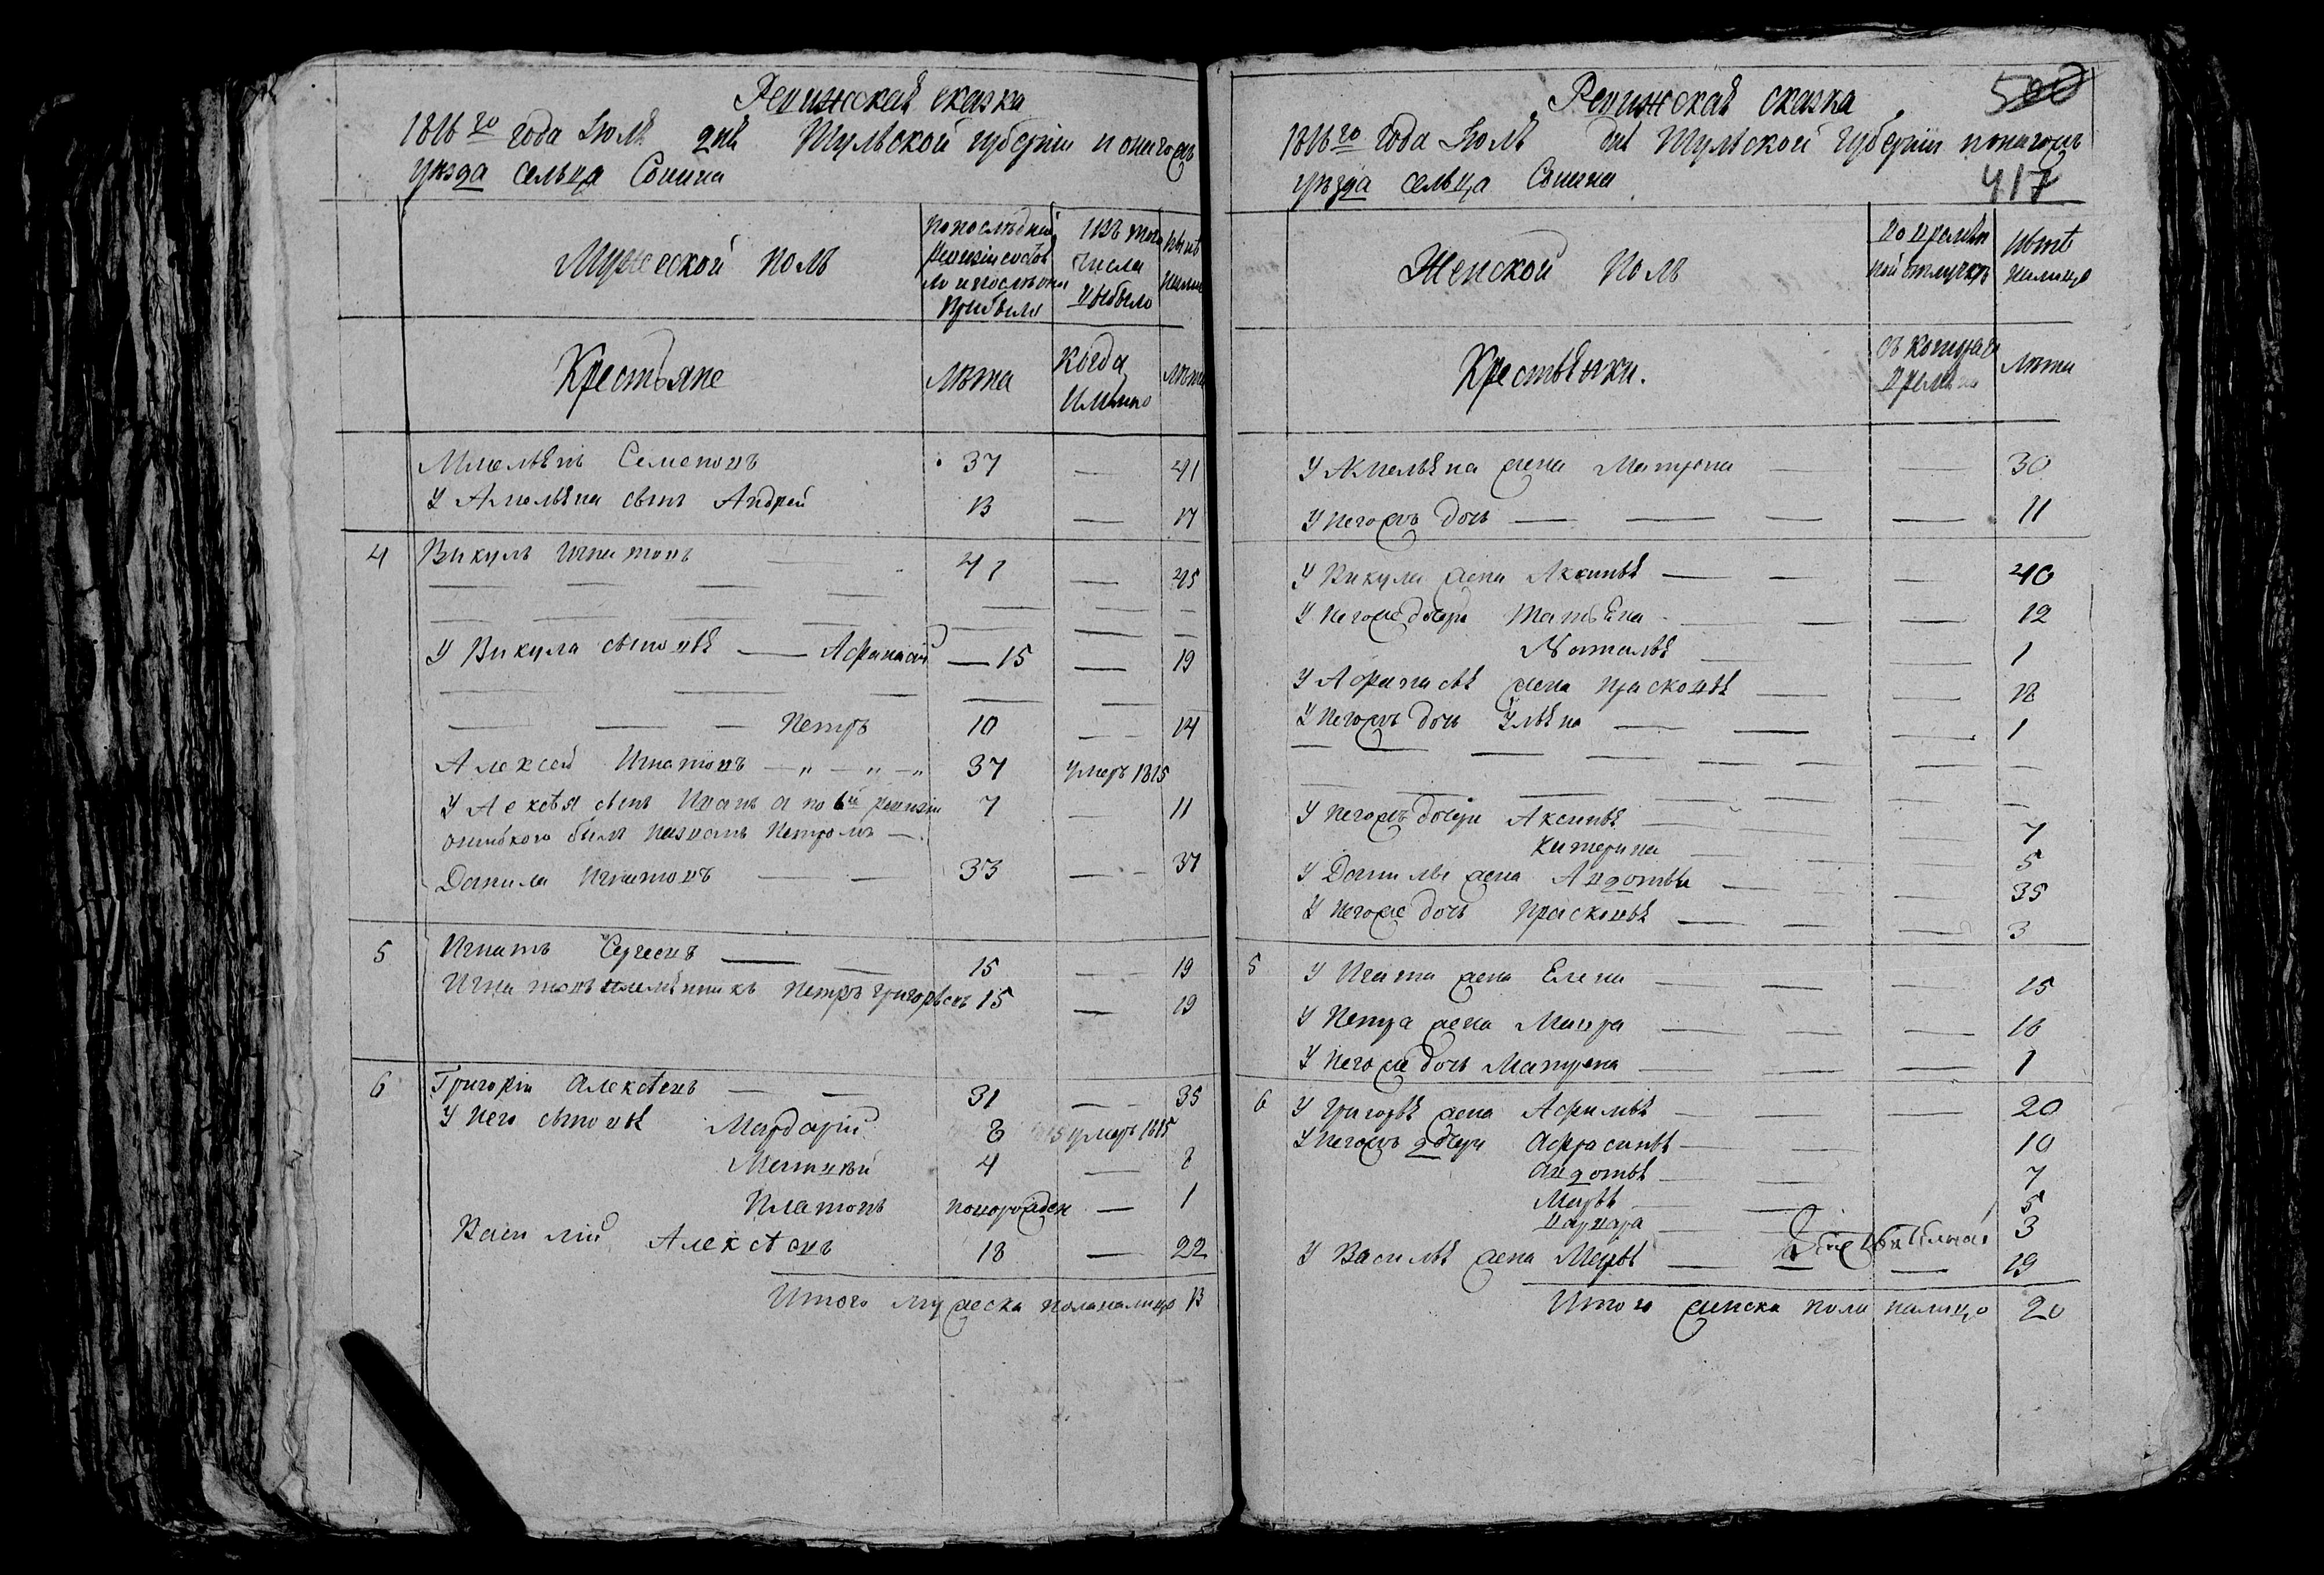 Ревижская сказка
1816го года Июля дня Тульской губернии Новиговъ
уезда сельца Сонина
Мужеской полъ
По последней
ревизии состоя
ло и после она
прибыло
Изъ того
числа
выбыло
Ныне
налице
Крестьяне
Лета
Когда
имянно
Лета
Амельян Семеновъ 37 — 41
У Амельяна сынъ Андрей 13 — 17
4 Викулъ Игнатовъ 41 — 45
У Викула сыновя — Афанасий — 15 — 19
— — — Петръ 10 — 14
Алексей Игнатовъ — „ — „ — „ 37 умеръ 1815
У Алексѣя сынъ Иванъ а по 6й ревизии 7 — 11
ошибкою былъ названъ Петромъ —
Данила Игнатовъ — — 33 — 37
5 Игнатъ Сергеевъ — — 15 — 19
Игнатовъ племянникъ Петръ Григорьевъ 15 — 19
6 Григорiй Алексѣевъ — — 31 — 35
У него сыновя Мардарiй 8 умеръ 1815
Матвей 4 — 8
Платонъ новорожден — 1
Василiй Алексѣевъ 18 — 22
Итого мужеска пола налицо 13
Ревижская сказка
500
1816го года Июля дня Тульской губернии Новиговъ
уезда сельца Сонина
417
Женской полъ
Во времян
ной отлучке
Ныне
налицо
Крестьянки.
Съ котораго
времяни
Лета
У Амельяна жена Матрона — — 30
У негожъ дочь — — — — 11
У Викула жена Аксинья — — — 40
У негоже дочери Татьяна — — — 12
Наталья — — 1
У Афанасья жена Прасковья — — — 18
У негожъ дочь Ульяна — — — 1
У негожъ дочери Аксинья — — 7
Катерина — — — 5
У Данилы жена Авдотья — — — 35
У негоже дочь Прасковья — — — 3
5 У Игната жена Елена — — — 15
У Петра жена Мавра — — — 18
У негоже дочь Матрена — — — 1
6 У Григорья жена Афимья — — — 20
У негожъ дочери Афрасинья — — 10
Авдотья — — 7
Марья — — 5
Варвара — 3
У Василья жена Марья — — — 19
Итого женска пола налицо 20